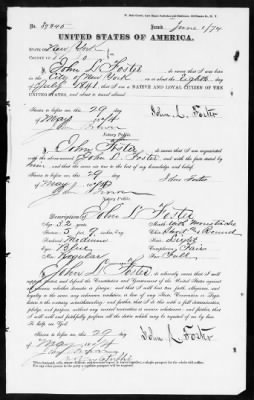 No. 39840 Issued June 1/74
UNITED STATES OF AMERICA.
STATE OF New York
COUNTY OF
I, John D Foster do swear that I was born
in the City of New York on or about the Eighth day
of July 1841; that I am a NATIVE AND LOYAL CITIZEN OF THE
UNITED STATES, and about to travel abroad.
Sworn to before me this 29 day
of May 1874
John D. Foster
Notary Public
I, John Foster do swear that I am acquainted
with the above-named John D. Foster, and with the facts stated
by him, and that the same are true to the best of my knowledge and belief.
Sworn to before me this 29 day
of May 1874
John Foster
Notary Public
Description of John D Foster
Age: 32 years
Mouth:
Stature: 5 feet 9 inches, Eng.
Chin:
Forehead: Medium
Hair: Light
Eyes: Blue
Complexion: Fair
Nose: Regular
Face: Full
I, John D Foster do solemnly swear that I will
support, protect and defend the Constitution and Government of the United States against
all enemies, whether domestic or foreign; and that I will bear true faith, allegiance and
loyalty to the same, any ordinance, resolution or law of any State, Convention or Legis-
lature to the contrary notwithstanding; and further, that I do this with a full determination,
pledge and purpose, without any mental reservation or evasion whatsoever; and further,
that I will well and faithfully perform all the duties which may be required of me by law.
So help me God.
Sworn to before me this 29 day
of May 1874
John D. Foster
Notary Public